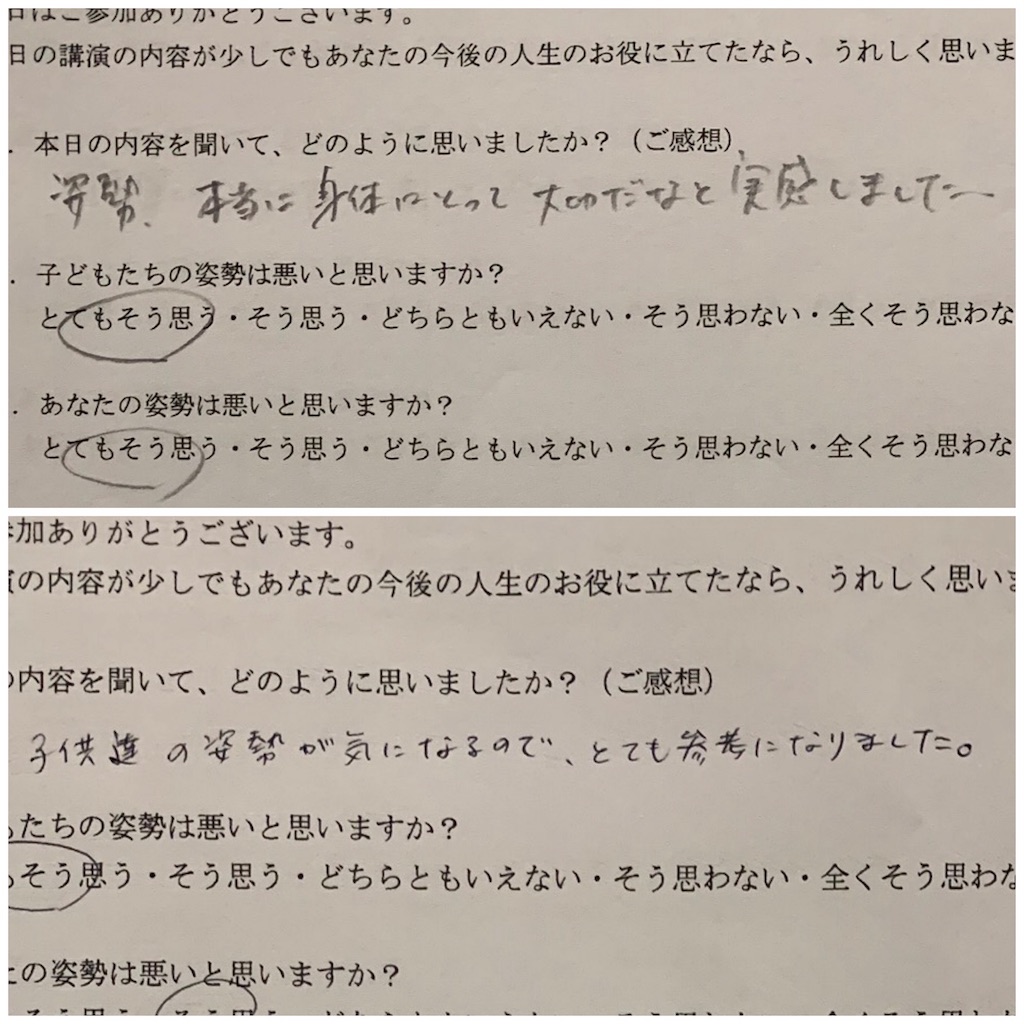 日はご参加ありがとうございます。
日の講演の内容が少しでもあなたの今後の人生のお役に立てたなら、うれしく思いま
. 本日の内容を聞いて、どのように思いましたか？（ご感想）
姿勢、本当に身体にとって大切だなと実感しました
. 子どもたちの姿勢は悪いと思いますか？
とてもそう思う・そう思う・どちらともいえない・そう思わない・全くそう思わな
. あなたの姿勢は悪いと思いますか？
とてもそう思う・そう思う・どちらともいえない・そう思わない・全くそう思わな
参加ありがとうございます。
演の内容が少しでもあなたの今後の人生のお役に立てたなら、うれしく思いま
の内容を聞いて、どのように思いましたか？（ご感想）
子供達の姿勢が気になるので、とても参考になりました。
もたちの姿勢は悪いと思いますか？
もそう思う・そう思う・どちらともいえない・そう思わない・全くそう思わな
たの姿勢は悪いと思いますか？
そう思う・そう思う・どちらともいえない・そう思わない・全くそう思わな